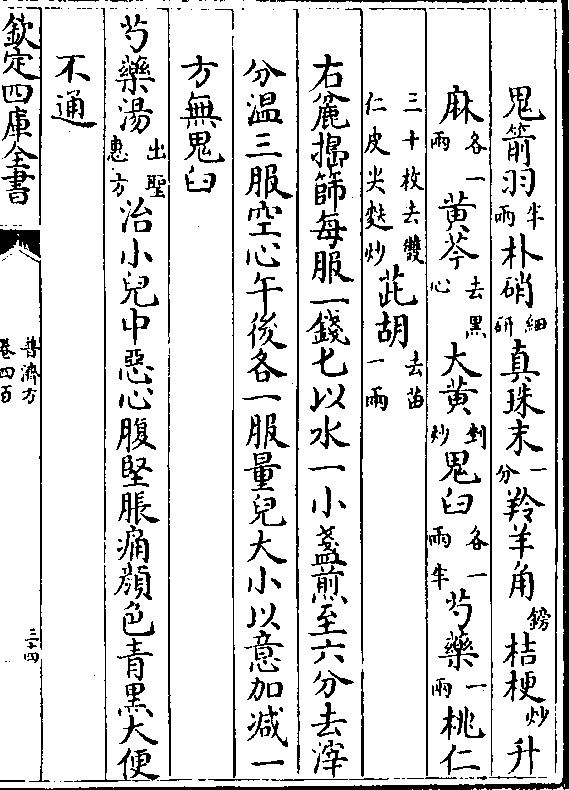 鬼箭羽半兩朴硝細研真珠末一分羚羊角鎊桔梗炒升
麻各一兩黄芩去黑心大黄剉炒鬼臼各一兩半芍藥一兩桃仁
三十枚去雙仁皮尖麩炒茈胡去苗一兩
右麄搗篩每服一錢七以水一小盞煎至六分去滓
分温三服空心午後各一服量兒大小以意加減一
方無鬼臼
芍藥湯出聖惠方治小兒中惡心腹堅脹痛顔色青黑大便
不通
欽定四庫全書
普濟方
卷四百
三十四